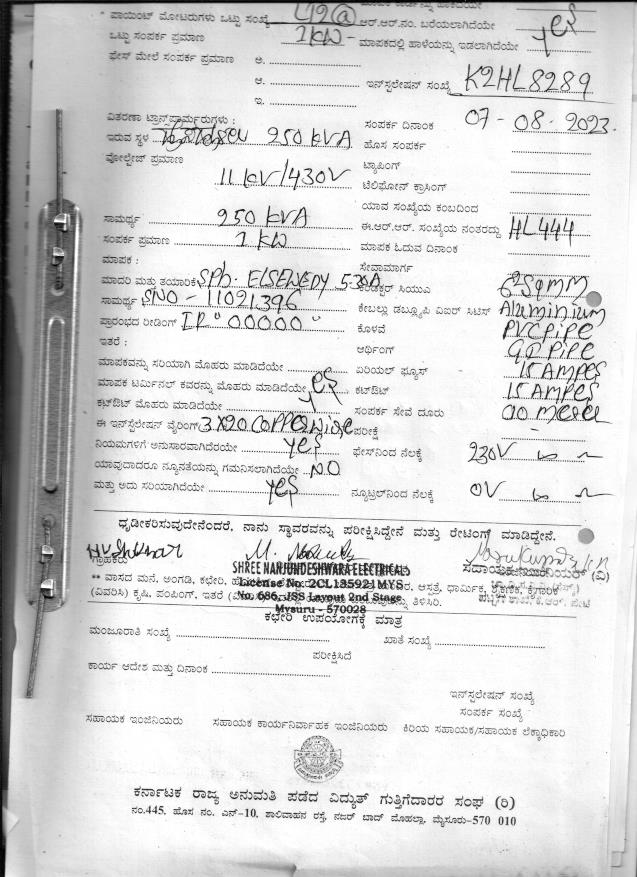 * ಪಾಯಿಂಟ್ ಮೋಟರುಗಳು ಒಟ್ಟು ಸಂಖ್ಯೆ ಆರ್.ಆರ್.ನಂ. ಬರೆಯಲಾಗಿದೆಯೇ yes
ಒಟ್ಟು ಸಂಪರ್ಕ ಪ್ರಮಾಣ 1 KW - ಮಾಪಕದಲ್ಲಿ ಹಾಳೆಯನ್ನು ಇಡಲಾಗಿದೆಯೇ
ಫೇಸ್ ಮೇಲೆ ಸಂಪರ್ಕ ಪ್ರಮಾಣ ಅ.
ಆ. ಇನ್‌ಸ್ಟಲೇಷನ್ ಸಂಖ್ಯೆ K2HL8289
ಇ.
ವಿತರಣಾ ಟ್ರಾನ್ಸ್‌ಫಾರ್ಮರುಗಳು : ಸಂಪರ್ಕ ದಿನಾಂಕ 07-08-2023
ಇರುವ ಸ್ಥಳ 250 KVA ಹೊಸ ಸಂಪರ್ಕ
ವೋಲ್ಟೇಜ್ ಪ್ರಮಾಣ 11 KV/430V ಟ್ಯಾಪಿಂಗ್
ಟೆಲಿಫೋನ್ ಕ್ರಾಸಿಂಗ್
ಯಾವ ಸಂಖ್ಯೆಯ ಕಂಬದಿಂದ
ಸಾಮರ್ಥ್ಯ 250 KVA ಈ.ಆರ್.ಆರ್. ಸಂಖ್ಯೆಯ ನಂತರದ್ದು HL444
ಸಂಪರ್ಕ ಪ್ರಮಾಣ 1 KW ಮಾಪಕ ಓದುವ ದಿನಾಂಕ
ಮಾಪಕ : ಸೇವಾಮಾರ್ಗ
ಮಾದರಿ ಮತ್ತು ತಯಾರಿಕೆ SPh. ELSEWEDY 5-30A ಕಂಡಕ್ಟರ್ ಸಿಯುಎ 6 Sqmm
ಸಾಮರ್ಥ್ಯ SNO - 11091396 ಕೇಬಲ್ಲು ಡಬ್ಲ್ಯೂಪಿ ವಿಐಆರ್ ಸಿಟಿಸ್ Aluminium
ಪ್ರಾರಂಭದ ರೀಡಿಂಗ್ I.R "00000" ಕೊಳವೆ PVC PIPE
ಇತರೆ : ಆರ್ಥಿಂಗ್ GI PIPE
ಮಾಪಕವನ್ನು ಸರಿಯಾಗಿ ಮೊಹರು ಮಾಡಿದೆಯೇ ಏರಿಯಲ್ ಫ್ಯೂಸ್ 15 AMPES
ಮಾಪಕ ಟರ್ಮಿನಲ್ ಕವರನ್ನು ಮೊಹರು ಮಾಡಿದೆಯೇ yes ಕಟ್‌ಔಟ್ 15 AMPES
ಕಟ್‌ಔಟ್ ಮೊಹರು ಮಾಡಿದೆಯೇ ಸಂಪರ್ಕ ಸೇವೆ ದೂರು
ಈ ಇನ್‌ಸ್ಟಲೇಷನ್ ವೈರಿಂಗ್ 3X20 COPPER wire ಪರೀಕ್ಷೆ
ನಿಯಮಗಳಿಗೆ ಅನುಸಾರವಾಗಿದೆಯೇ yes ಫೇಸ್‌ನಿಂದ ನೆಲಕ್ಕೆ 230V
ಯಾವುದಾದರೂ ನ್ಯೂನತೆಯನ್ನು ಗಮನಿಸಲಾಗಿದೆಯೇ NO
ಮತ್ತು ಅದು ಸರಿಯಾಗಿದೆಯೇ yes ನ್ಯೂಟ್ರಲ್‌ನಿಂದ ನೆಲಕ್ಕೆ 0V
ಧೃಡೀಕರಿಸುವುದೇನೆಂದರೆ, ನಾನು ಸ್ಥಾವರವನ್ನು ಪರೀಕ್ಷಿಸಿದ್ದೇನೆ ಮತ್ತು ರೇಟಿಂಗ್ ಮಾಡಿದ್ದೇನೆ.
ಗ್ರಾಹಕರು
SHREE NANJUNDESHWARA ELECTRICALS
License No. 2CL135921MYS
No. 686, JSS Layout 2nd Stage
Mysuru - 570028
** ವಾಸದ ಮನೆ, ಅಂಗಡಿ, ಕಛೇರಿ, ಆಸ್ಪತ್ರೆ, ಧಾರ್ಮಿಕ, ಶೈಕ್ಷಣಿಕ, ಕೈಗಾರಿಕೆ
(ವಿವರಿಸಿ) ಕೃಷಿ, ಪಂಪಿಂಗ್, ಇತರೆ ತಿಳಿಸಿರಿ.
ಕಛೇರಿ ಉಪಯೋಗಕ್ಕೆ ಮಾತ್ರ
ಮಂಜೂರಾತಿ ಸಂಖ್ಯೆ ಖಾತೆ ಸಂಖ್ಯೆ
ಪರೀಕ್ಷಿಸಿದೆ
ಕಾರ್ಯ ಆದೇಶ ಮತ್ತು ದಿನಾಂಕ
ಇನ್‌ಸ್ಟಲೇಷನ್ ಸಂಖ್ಯೆ
ಸಂಪರ್ಕ ಸಂಖ್ಯೆ
ಸಹಾಯಕ ಇಂಜಿನಿಯರು ಸಹಾಯಕ ಕಾರ್ಯನಿರ್ವಾಹಕ ಇಂಜಿನಿಯರು ಕಿರಿಯ ಸಹಾಯಕ/ಸಹಾಯಕ ಲೆಕ್ಕಾಧಿಕಾರಿ
ಕರ್ನಾಟಕ ರಾಜ್ಯ ಅನುಮತಿ ಪಡೆದ ವಿದ್ಯುತ್ ಗುತ್ತಿಗೆದಾರರ ಸಂಘ (ರಿ)
ನಂ.445, ಹೊಸ ನಂ. ಎನ್-10, ಶಾಲಿವಾಹನ ರಸ್ತೆ, ನಜರ್ ಬಾದ್ ಮೊಹಲ್ಲಾ, ಮೈಸೂರು-570 010